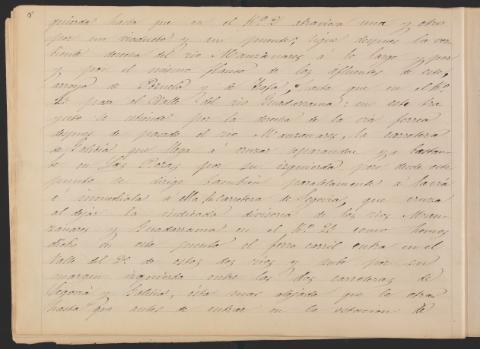 8
quierda hasta que en el K.º 2 atraviesa una y otro
por un viaducto y un puente; sigue despues la ver-
tiente derecha del rio Manzanares á lo largo
y por el mismo flanco de los afluentes de este,
arroyo de y de hasta que en el K.º
22 pasa el Valle del rio Guadarrama: en este tra
yecto se estiende por la derecha de la via ferrea
despues de pasado el rio Manzanares, la carretera
de Galicia que llega á cruzar separandose ya bastan-
te en Las Rozas por su izquierda por desde este
punto se dirige tambien paralelamente á la via
é inmediata á ella la Carretera de Segovia, que cruza
al dejar la indicada divisoria de los rios Man-
zanares y Guadarrama en el K.º 22 como hemos
dicho en este punto el ferro carril entra en el
Valle del 2º de estos dos rios y sube por su
margen izquierda entre las dos carreteras de
Segovia y Galicia, esta mas alejada que la otra
hasta que antes de entrar en la estacion de